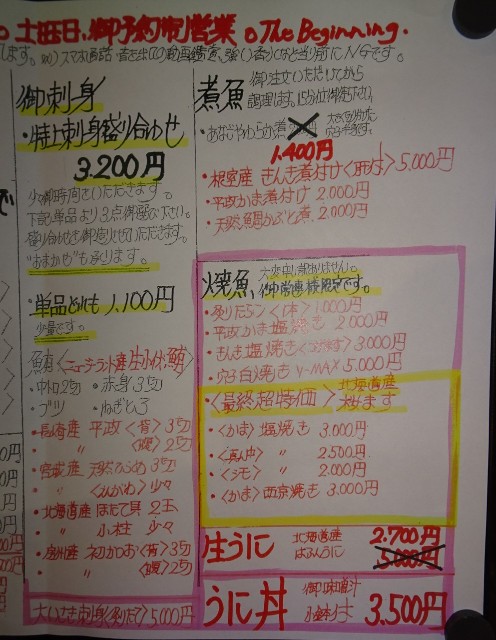 土曜日、御予約制営業。The Beginning.
御刺身
・特上刺身盛り合わせ
3.200円
少々御時間をいただきます。
下記単品より3点御選び下さい。
盛り合わせを御造りさせていただきます。
"おまかせ"も承ります。
・単品どれでも1.100円
少量です。
鮪〈ニュージーランド産生インド鮪〉
・中トロ2切 ・赤身3切
・ブツ ・ねぎとろ
・長崎産 平政〈背〉3切
〃 〈腹〉2切
・宮城産 天然ひらめ3切
〃 〈えんがわ〉少々
・北海道産 ほたて貝 2玉
〃 小柱 少々
・房州産 初かつお〈背〉3切
〃 〈腹〉2切
大いさき刺身〈釣たて〉5.000円
煮魚
御注文いただいてから
調理します。15分位御待ち下さい。
1.400円
・根室産 きんき煮付け〈肝付〉5.000円
・平政かま煮付け 2.000円
・天然鯛かぶと煮 2.000円
焼魚
大変申し訳ありません。
御常連様限定です。
・炙りたらこ〈1本〉1.000円
・平政かま塩焼き 2.000円
・きんき塩焼き 3.000円
・穴子白焼き Y-MAX 5.000円
・〈最終超特価〉北海道産
桜ます
・〈かま〉塩焼き 3.000円
・〈真ん中〉 〃 2.500円
・〈シモ〉 〃 2.000円
・〈かま〉西京焼き 3.000円
生うに 北海道産 2.700円
ばふんうに 3.000円
うに丼 御味噌汁 3.500円
小鉢